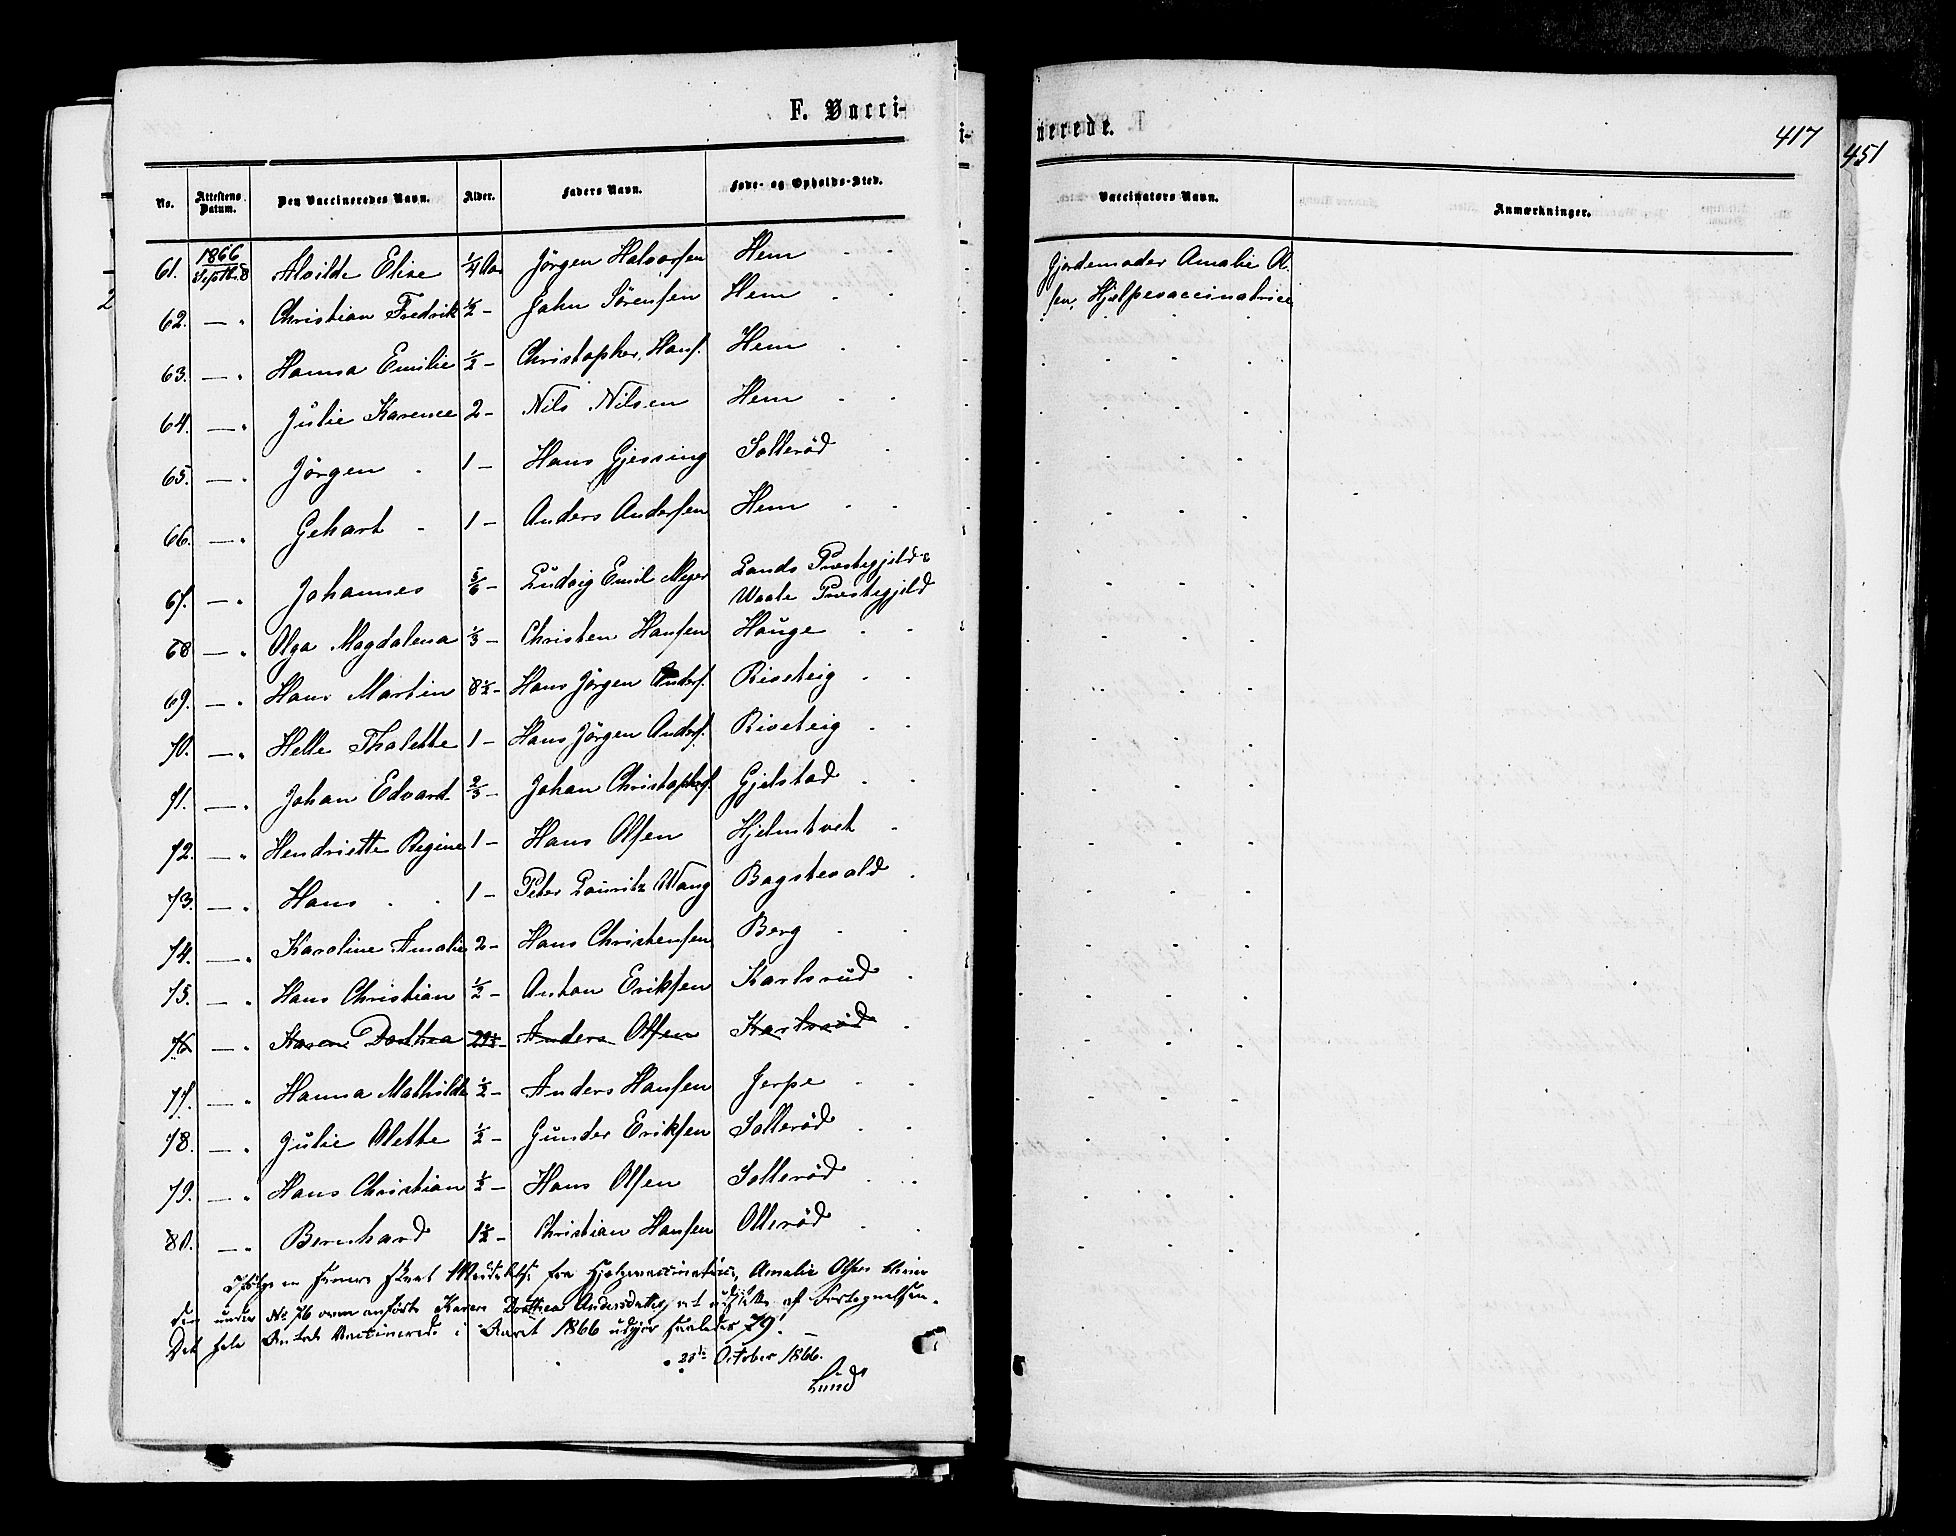 F. Vacci-
nerede.
417
451
No. Attestens Datum. Den Vaccineredes Navn. Alder. Faders Navn. Føde- og Opholds-Sted. Vaccinators Navn. Anmærkninger.
61. 1866 Septbr. 8 Alvilde Elise 1/4 Aar Jörgen Halvorsen Hem Gjordemoder Amalie Ol-
62. — " Christian Fredrik 1/2 – John Sörensen Hem sen, Hjelpevaccinatrice
63. — " Hanna Emilie 1/2 – Christopher Hans. Hem
64. — " Julie Karence 2 – Nils Nilsen Hem
65. — " Jörgen 1 – Hans Gjessing Solleröd
66. — " Gehart 1 – Anders Andersen Hem
67. — " Johannes 5/6 – Ludvig Emil Meyer Lands Præstegjeld
Waale Præstegjeld
68 — " Olga Magdalena 1/3 – Christen Hansen Hauge
69. — " Hans Martin 8 1/2 – Hans Jörgen Anders. Risteig
70. — " Helle Thalette 1 – Hans Jörgen Anders. Risteig
71. — " Johan Edvard 2/3 – Johan Christophers. Gjelstad
72. — " Henriette Regine 1 – Hans Olsen Hjelmtvet
73. — " Hans 1 – Peter Lauritz Wang Bagstevold
74. — " Karoline Amalie 2 – Hans Christensen Berg
75. — " Hans Christian 1/2 – Anton Eriksen Karlsrud
76 — " Karen Dorthea Anders Olsen Karlsröd
77. — " Hanna Mathilde 1/2 – Anders Hansen Jerpe
78. — " Julie Olette 1/2 – Gunder Eriksen Solleröd
79. — " Hans Christian 1/2 – Hans Olsen Solleröd
80. — " Bernhard 1 1/2 – Christian Hansen Olleröd
Ifølge en senere skeet Meddelelse fra Hjelpevaccinatrice, Amalie Olsen bliver
den under No 76 oven anførte Karen Dorthea Andersdatter, at udslette af Fortegnelsen.
Det hele Antal Vaccinerede i Aaret 1866 udgjør saaledes 79. —
October 1866.
Lund